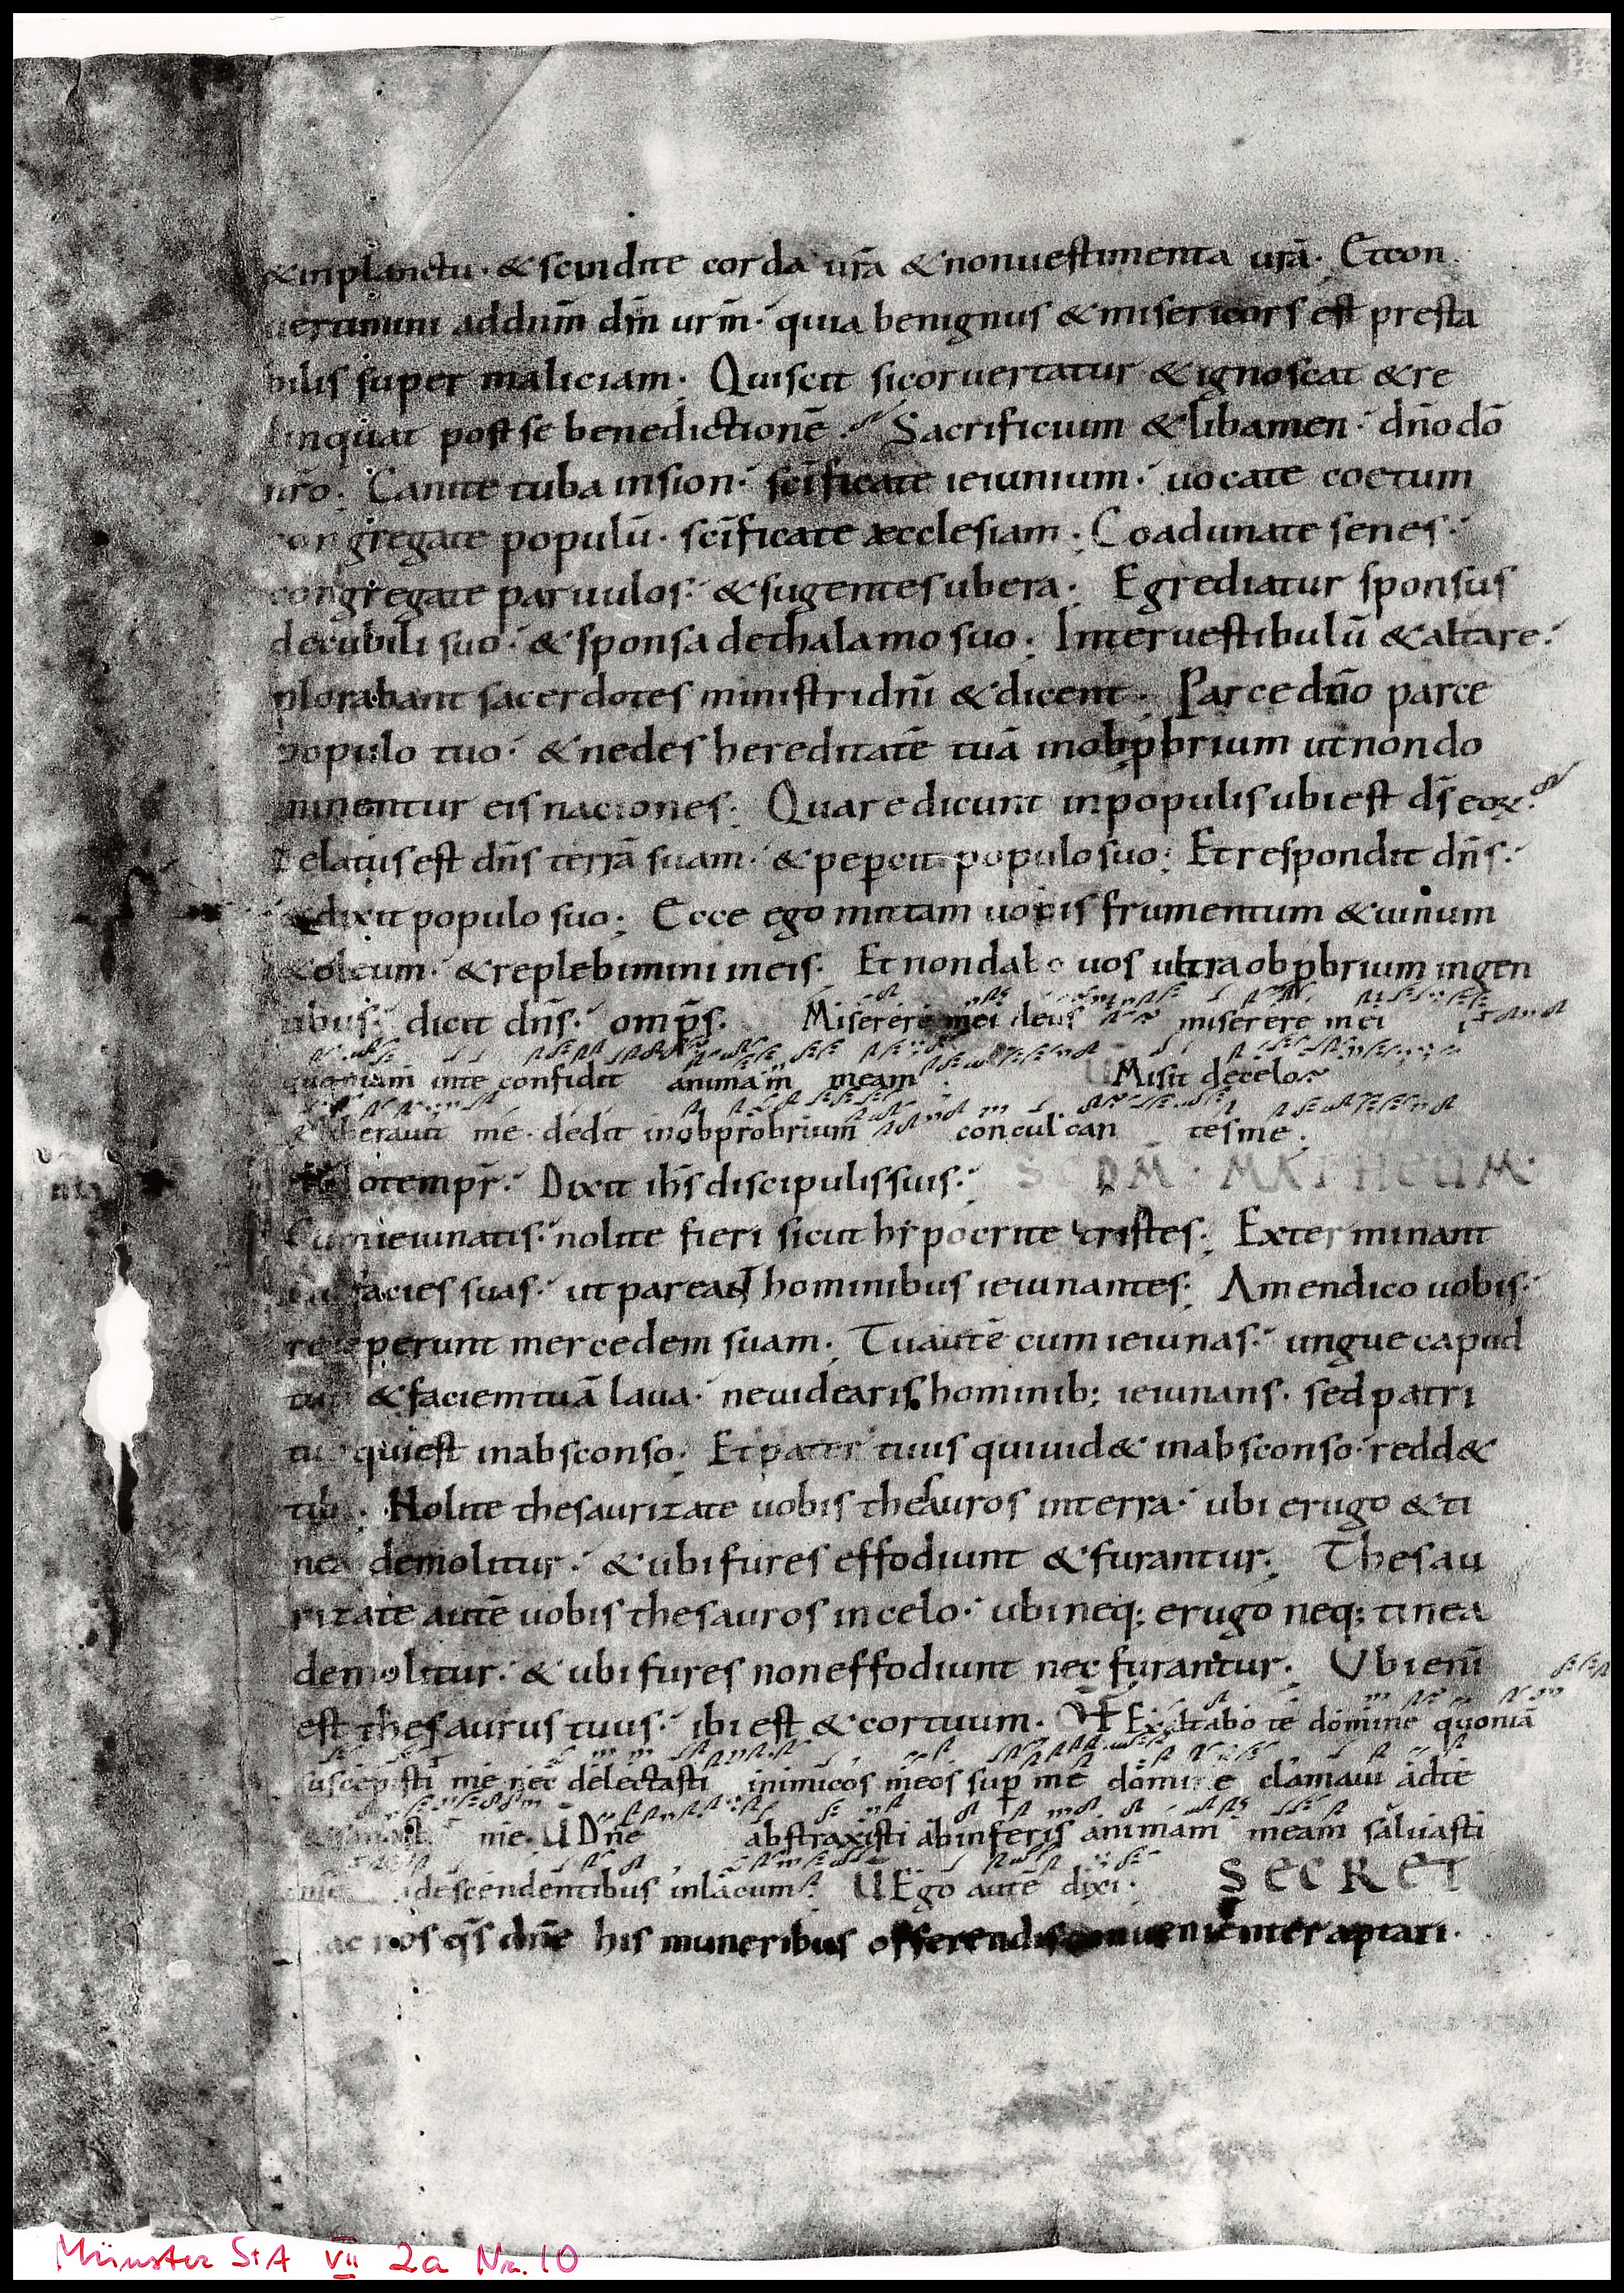 & inplanctu · & scindite corda ur̄a & nonuestimenta ur̄a · Et con
uertimini addnm̄ dm̄ urm̄ · quia benignus & misericors est presta
bilis super maliciam · Quiscit siconuertatur & ignoscat & re
linquat postse benedictionē · Sacrificium & libamen · dño dō
nr̄o · Canite tuba insion · sc̄ificate ieiunium · uocate coetum
congregate populū · sc̄ificate æcclesiam · Coadunate senes ·
congregate paruulos · & sugentes ubera · Egrediatur sponsus
decubili suo · & sponsa dethalamo suo · Inter uestibulū & altare ·
plorabant sacerdotes ministri dñi & dicent · Parce dño parce
populo tuo · & nedes hereditatē tuā inobp̱brium utnondo
minentur eis naciones · Quare dicunt inpopulis ubi est ds̄ eoꝝ ·
Zelatus est dn̄s terrā suam · & peꝑcit populo suo · Et respondit dn̄s ·
& dixit populo suo · Ecce ego mittam uobis frumentum & uinum
& oleum · & replebimini ineis · Et nondabo uos ultra obp̱brium ingen
tibus · dicit dn̄s · omp̄s · Miserere mei deus miserere mei
quoniam inte confidit animam meam · U Misit decelo
& liberauit me · dedit inobprobrium conculcan tesme ·
otempr̄ · Dixit ihs̄ discipulis suis · SCDM · MATHEUM ·
Cum ieiunatis · nolite fieri sicut hypocrite tristes · Exterminant
facies suas · ut pareant hominibus ieiunantes · Amendico uobis ·
receperunt mercedem suam · Tu autē cum ieiunas · ungue capud
& faciem tuā laua · ne uidearis hominib; ieiunans · sed patri
qui est inabsconso · Et pater tuus qui uid& inabsconso · redd&
tibi · Nolite thesaurizate uobis thesauros interra · ubi erugo & ti
nea demolitur · & ubi fures effodiunt & furantur · Thesau
rizate autē uobis thesauros in celo · ubi neq; erugo neq; tinea
demolitur · & ubi fures non effodiunt nec furantur · Ubi enī
est thesaurus tuus · ibi est & cor tuum · Exaltabo te domine quoniā
suscepisti me nec delectasti inimicos meos suꝑ me domine clamaui adte
me · U Dn̄e abstraxisti abinferis animam meam saluasti
me descendentibus inlacum · U Ego autē dixi · SECRET
ac nos qs̄ dn̄e his muneribus offerendis conuenienter aptari ·
Münster StA VII 2a Nr. 10